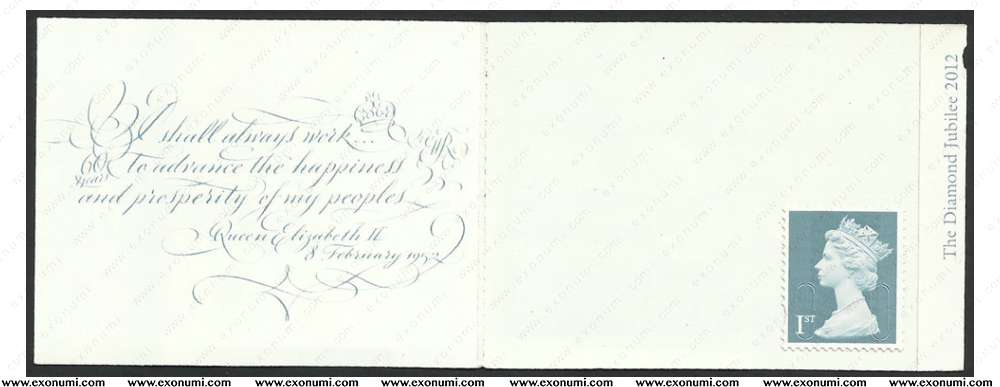 I shall always work
60 Years
to advance the happiness
and prosperity of my peoples
Queen Elizabeth II
8 February 1952
EIIR
1ST
The Diamond Jubilee 2012
www.exonumi.com www.exonumi.com www.exonumi.com www.exonumi.com www.exonumi.com www.exonumi.com www.exonumi.com www.exonumi.com